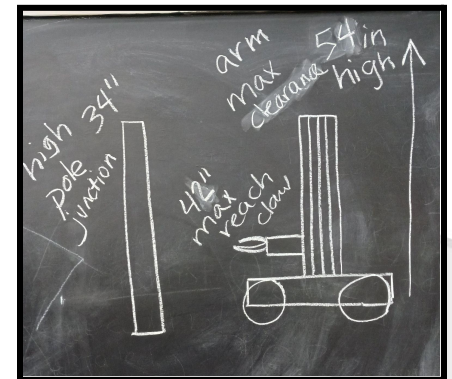 high 34"
pole
junction
42"
max
reach
claw
arm
max 54 in
clearance high